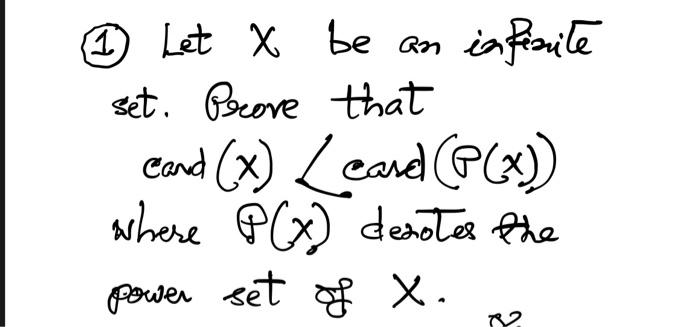 ① Let X be an infinite
set. Prove that
card (X) < card (P(X))
where P(X) denotes the
power set of X.